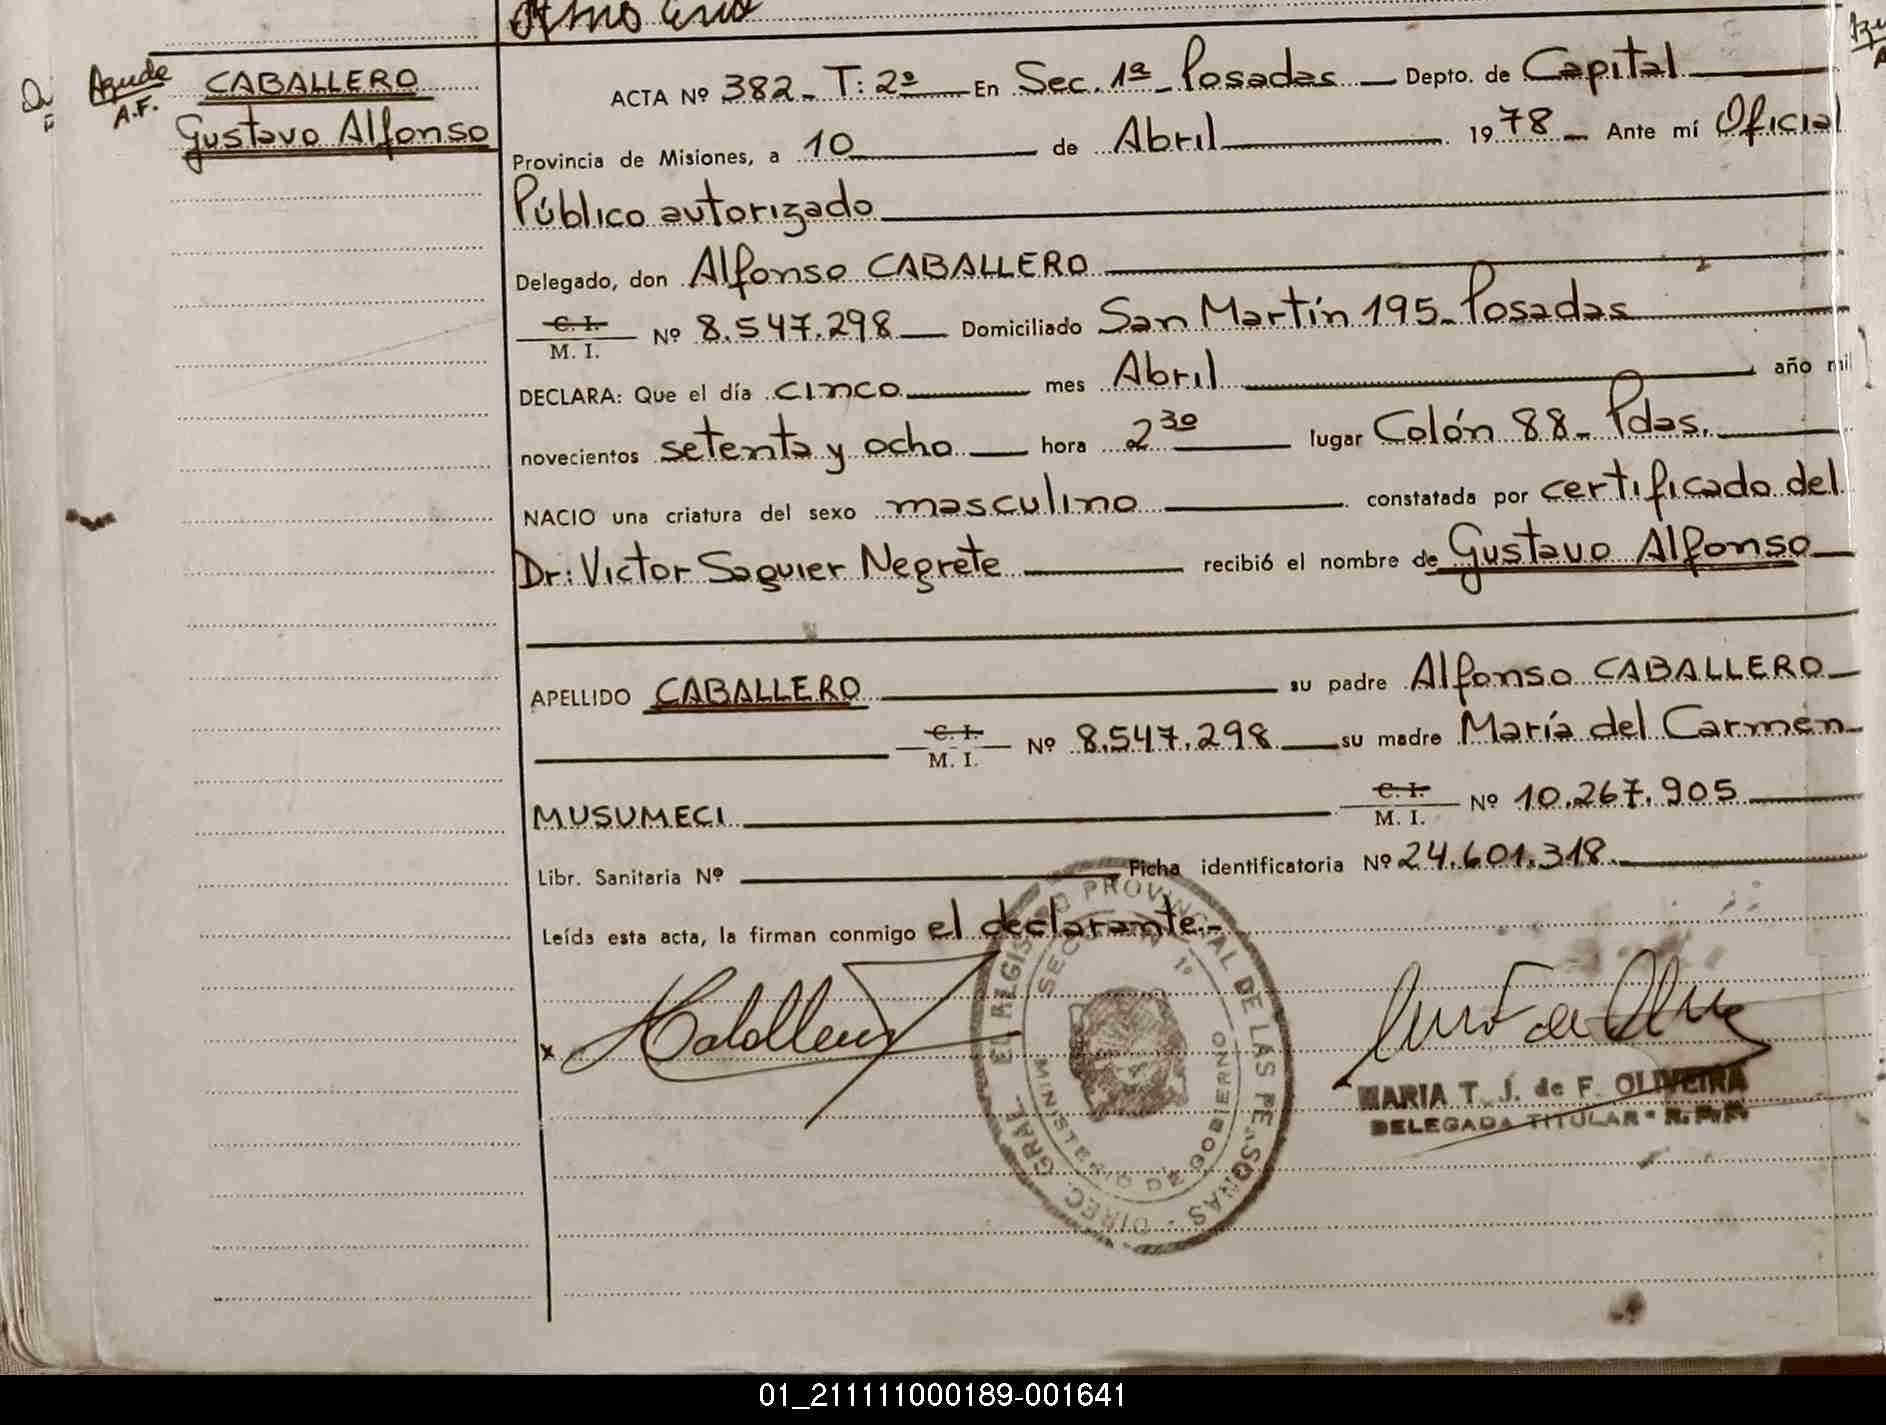 CABALLERO
Gustavo Alfonso
A.F.
ACTA Nº 382 - T: 2º En Sec. 1ª - Posadas Depto. de Capital
Provincia de Misiones, a 10 de Abril 1978 Ante mí Oficial
Público autorizado
Delegado, don Alfonso CABALLERO
C. I.
M. I. Nº 8.547.298 Domiciliado San Martín 195 - Posadas
DECLARA: Que el día cinco mes Abril año mil
novecientos setenta y ocho hora 2 30 lugar Colón 88 - Pdas.
NACIO una criatura del sexo masculino constatada por certificado del
Dr: Victor Saguier Negrete recibió el nombre de Gustavo Alfonso
APELLIDO CABALLERO su padre Alfonso CABALLERO
C. I.
M. I. Nº 8.547.298 su madre María del Carmen
MUSUMECI C. I.
M. I. Nº 10.267.905
Libr. Sanitaria Nº Ficha identificatoria Nº 24.601.318
Leída esta acta, la firman conmigo el declarante.-
x Caballero
DIREC. GRAL. EL REGISTRO PROVINCIAL DE LAS PERSONAS
SECCION 1º
MINISTERIO DE GOBIERNO
MARIA T. J. de F. OLIVEIRA
DELEGADA TITULAR - R.P.P.
01_211111000189-001641